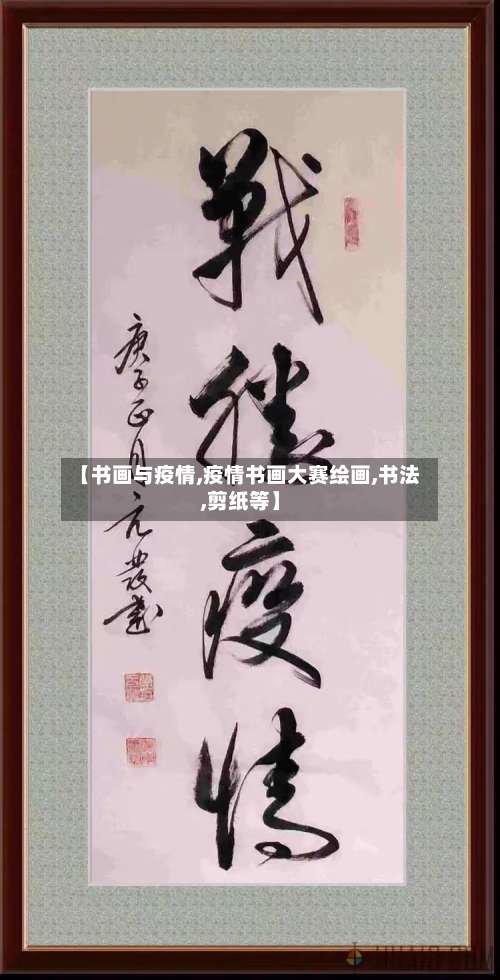 戰勝疫情
庚子正月元發書
【书画与疫情,疫情书画大赛绘画,书法
,剪纸等】